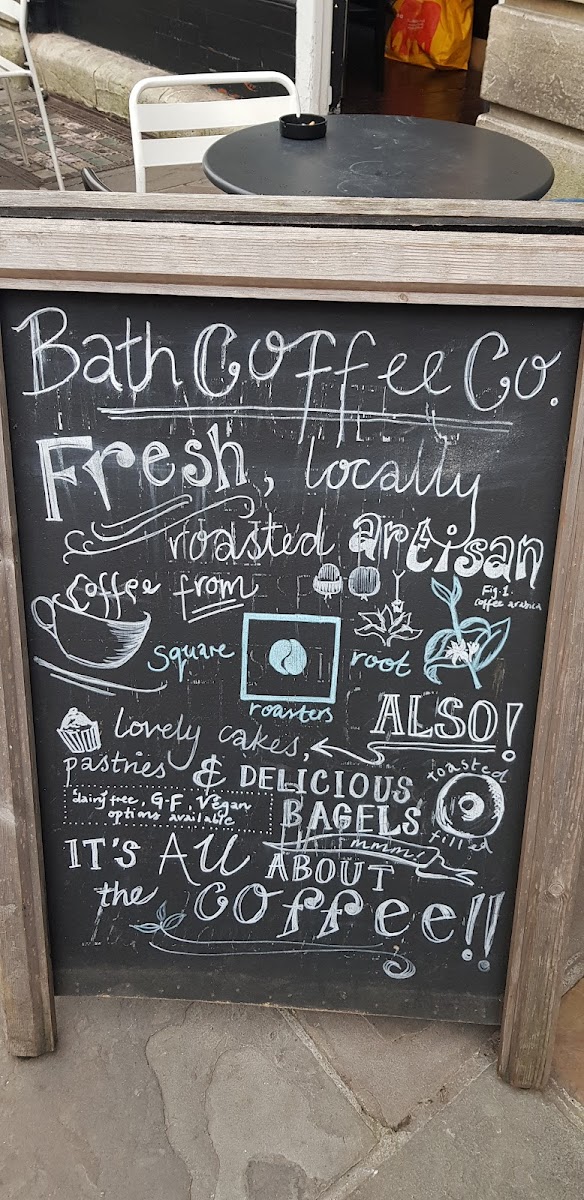 Bath Coffee Co.
Fresh, locally
roasted artisan
Coffee from
Fig. 1.
coffee arabica
Square root
roasters
ALSO!
lovely cakes,
pastries & DELICIOUS
BAGELS
roasted
filled
dairy free, G.F, Vegan
options available
mmm!
IT'S All ABOUT
the Coffee!!